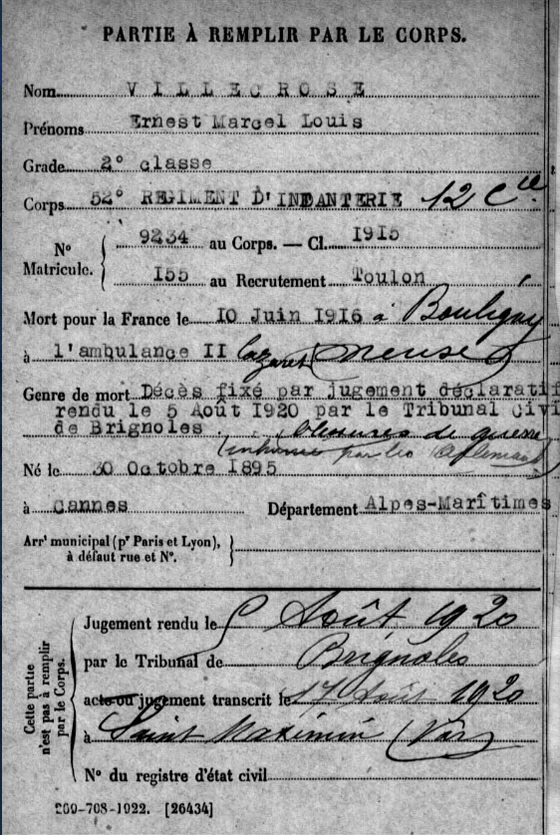 PARTIE À REMPLIR PAR LE CORPS.
Nom V I L L E C R O S E
Prénoms Ernest Marcel Louis
Grade 2° classe
Corps 52° REGIMENT D'INDANTERIE 12 Cie
N° Matricule. 9234 au Corps. — Cl. 1915
155 au Recrutement Toulon
Mort pour la France le 10 Juin 1916 à Bouligny
à l'ambulance II lazaret (Meuse)
Genre de mort Décès fixé par jugement déclaratif
rendu le 5 Août 1920 par le Tribunal Civi
de Brignoles . blessures de guerre
(inhumé par les Allemands)
Né le 30 Octobre 1895
à Cannes Département Alpes-Marîtimes
Arrt municipal (pr Paris et Lyon),
à défaut rue et N°.
Cette partie n'est pas à remplir par le Corps.
Jugement rendu le 5 Août 1920
par le Tribunal de Brignoles
acte ou jugement transcrit le 17 Août 1920
à Saint Maximin (Var)
N° du registre d'état civil
209-708-1922. [26434]